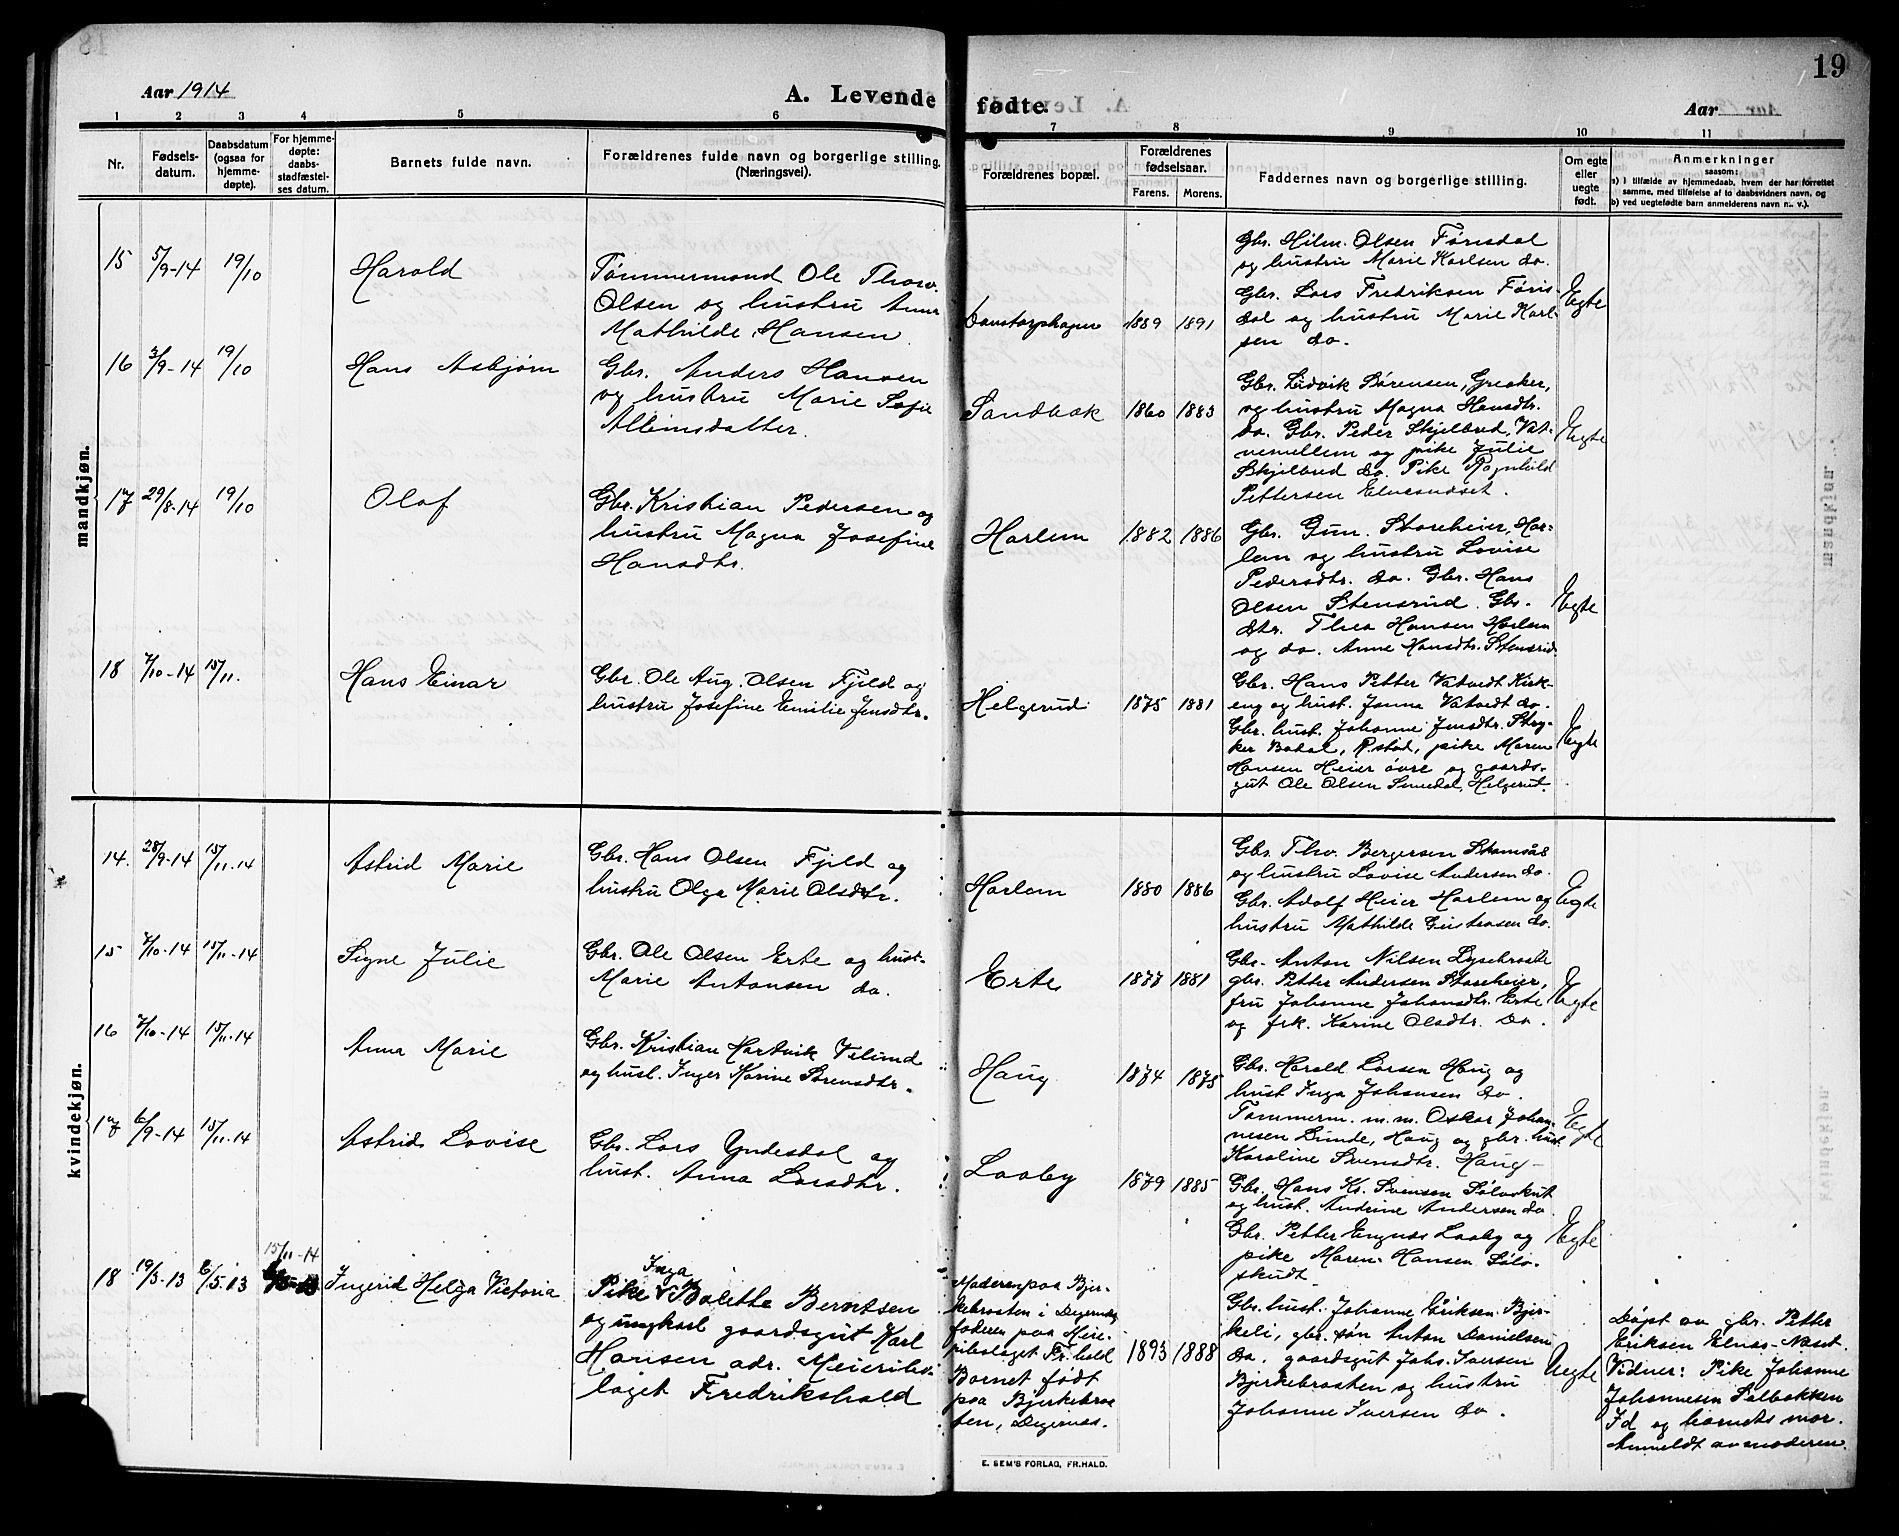 19
Aar 1914
A. Levende fødte.
Aar
1 2 3 4 5 6 7 8 9 10 11
Nr.
Fødsels-datum.
Daabsdatum (ogsaa for hjemme-døpte).
For hjemme-døpte: daabs-stadfæstel-ses datum.
Barnets fulde navn.
Forældrenes fulde navn og borgerlige stilling. (Næringsvei).
Forældrenes bopæl.
Forældrenes fødselsaar.
Farens. Morens.
Faddernes navn og borgerlige stilling.
Om egte eller uegte født.
Anmerkninger
saasom:
a) i tilfælde av hjemmedaab, hvem der har forrettet samme, med tilføielse af to daabsvidners navn, og
b) ved uegtefødte barn anmelderens navn n. v.).
mandkjøn.
15 5/9-14 19/10 Harold
Tømmermand Ole Thorv.
Olsen og hustru Anna
Mathilde Hansen.
1889 1891
Gbr. Hilm. Olsen Førisdal
og hustru Marie Karlsen do.
Gbr. Lars Fredriksen Føris-
dal og hustru Marie Karl-
sen do.
Egte
16 3/9-14 19/10 Hans Asbjørn
Gbr. Anders Hansen
og hustru Marie Sofie
Sandbæk 1860 1883
Gbr. Ludvik Sørensen, Greaker,
og hustru Magna Hansdtr.
do. Gbr. Peder Skjelbred, Vat-
vemellem og pike Julie
Skjelbred do. Pike Ragnhild
Pettersen
Egte
17 29/8-14 19/10 Olaf
Gbr. Kristian Pedersen og
hustru Magna Josefine
Hansdtr.
Harlem 1882 1886
Gbr. Gun. Storeheier, Har-
lem og hustru Lovise
Pedersdtr. do. Gbr. Hans
Olsen Stensrud. Gbr.
dtr. Thea Hansen Harlem
og do. Anne Hansdtr. Stensrud.
Egte
18 7/10-14 15/11. Hans Einar
Gbr. Ole Aug. Olsen Fjeld og
hustru Josefine Emilie Jensdtr.
Helgerud 1875 1881
Gbr. Hans Petter Vatvedt Kirk-
eng og hust. Janna Vatvedt do.
Gbr. hust. Johanne Jensdtr. Stry-
ker Bakal, R.stad, pike Maren
Hansen Heier øvre og gaards-
gut Ole Olsen Helgerud.
Egte
kvindekjøn.
14. 28/9-14 15/11-14 Astrid Marie
Gbr. Hans Olsen Fjeld og
hustru Olga Marie Olsdtr.
Harlem 1880 1886
Gbr. Thv. Bergersen
og hustru Lovise Andersen do.
Gbr. Adolf Heier Harlem og
hustru Mathilde Gustavsen do.
Egte
15 7/10-14 15/11-14 Signe Julie
Gbr. Ole Olsen Erte og hust-
Marie Antonsen do.
Erte 1877 1881
Gbr. Anton Nilsen Lysebraate
gbr. Petter Andersen Storeheier,
fru Johanne Johansdtr. Erte
og frk. Karine Olsdtr. do.
Egte
16 7/10-14 15/11-14 Anna Marie
Gbr. Kristian Hartvik
og hust. Inger Karine Sørensdtr.
Haug 1874 1875
Gbr. Harald Larsen Haug og
hust Inga Johansen do.
Tømmerm. m.m. Oskar Johan-
nesen Lunde, Haug og gbr. hust.
Karoline Svensdtr. Haug-
Egte
17 6/9-14 15/11-14 Astrid Lovise
Gbr. Lars Yndesdal og
hust. Anna Larsdtr.
Laaby 1879 1885
Gbr. Hans Kr. Svensen Sølvskut
og hust. Andrine Andersen do
Gbr. Petter Engnæs Laaby og
pike Maren Hansen Sølv-
skudt
Egte
18 19/3-13 6/5-13 15/11-14 Ingerid Helga Victoria
Pike Inga Bolette Berntsen
og ungkarl gaardsgut Karl
Hansen adr. Meieribo-
laget Fredrikshald
Moderen paa Bjer-
kebraaten i Degernes,
faderen paa Meie-
ribolaget Fr.hald
Barnet født
paa Bjerkebraa-
ten, Degernes.
1893 1888
Gbr. hust. Johanne Eriksen Bjer-
keli, gbr. søn Anton Danielsen
do. gaardsgut Johs. Iversen
Bjerkebraaten og hustru
Johanne Iversen do.
Uegte
Døpt av gbr. Petter
Eriksen Elnæs-Næset.
Vidner: Pike Johanne
Johannesen Sælbakken
Id og barnets mor.
Anmeldt av moderen.
E. SEM'S FORLAG, FR.HALD.